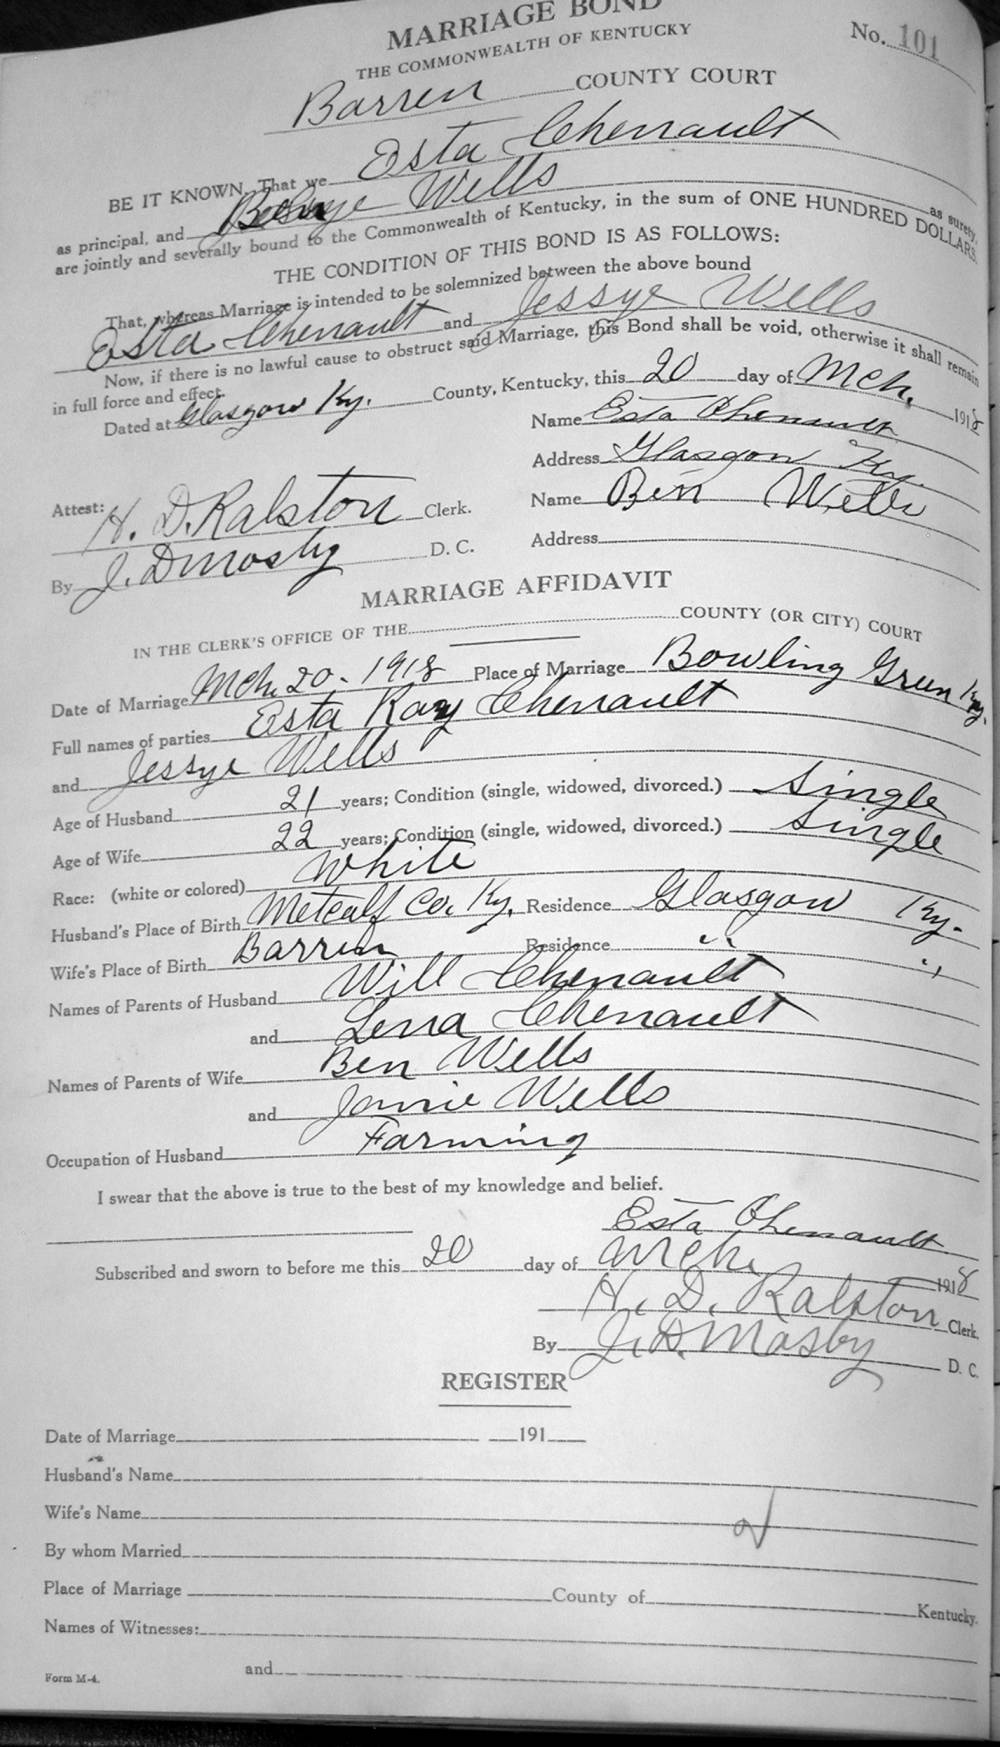 MARRIAGE BOND
No. 101
THE COMMONWEALTH OF KENTUCKY
Barren COUNTY COURT
BE IT KNOWN, That we Esta Chenault
as principal, and Wells as surety,
are jointly and severally bound to the Commonwealth of Kentucky, in the sum of ONE HUNDRED DOLLARS.
THE CONDITION OF THIS BOND IS AS FOLLOWS:
That, whereas Marriage is intended to be solemnized between the above bound
Esta Chenault and Jessye Wells
Now, if there is no lawful cause to obstruct said Marriage, this Bond shall be void, otherwise it shall remain
in full force and effect.
Dated at Glasgow Ky. County, Kentucky, this 20 day of Mch. 1918
Name Esta Chenault
Address Glasgow Ky.
Attest: H. D. Ralston Clerk.
Name Ben Wells
By J. D Mosby D. C.
Address
MARRIAGE AFFIDAVIT
IN THE CLERK'S OFFICE OF THE COUNTY (OR CITY) COURT
Date of Marriage Mch. 20 - 1918 Place of Marriage Bowling Green Ky.
Full names of parties Esta Ray Chenault
and Jessye Wells
Age of Husband 21 years; Condition (single, widowed, divorced.) Single
Age of Wife 22 years; Condition (single, widowed, divorced.) Single
Race: (white or colored) White
Husband's Place of Birth Metcalf Co. Ky. Residence Glasgow Ky.
Wife's Place of Birth Barren Residence " "
Names of Parents of Husband Will Chenault
and Lena Chenault
Names of Parents of Wife Ben Wells
and Jannie Wells
Occupation of Husband Farming
I swear that the above is true to the best of my knowledge and belief.
Esta Chenault
Subscribed and sworn to before me this 20 day of Mch. 1918
H. D. Ralston Clerk.
By J. D. Mosby D. C.
REGISTER
Date of Marriage 191
Husband's Name
Wife's Name
By whom Married
Place of Marriage County of Kentucky.
Names of Witnesses:
and
Form M-4.